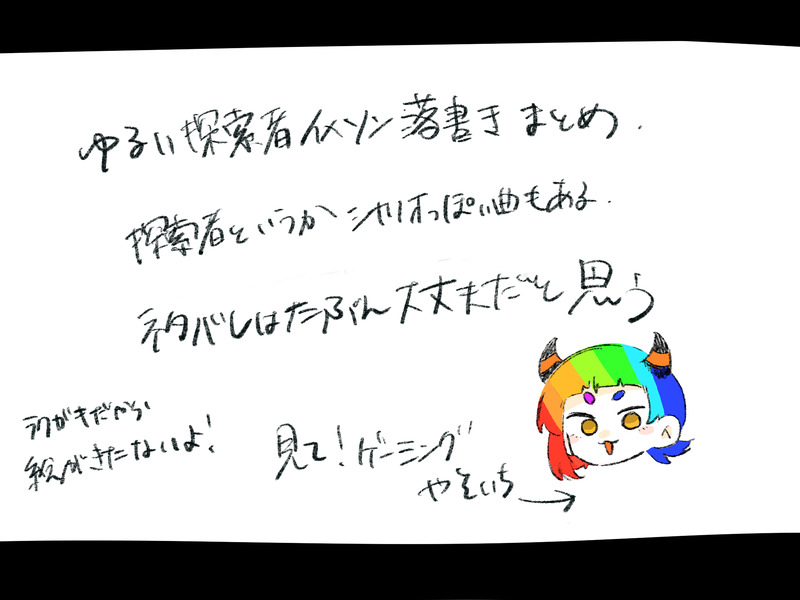 ゆるい探索者イメソン落書きまとめ.
探索者というかシナリオっぽい曲もある.
ネタバレはたぶん大丈夫だと思う
ラクガキだから
絵がきたないよ!
見て!ゲーミング
やそいち